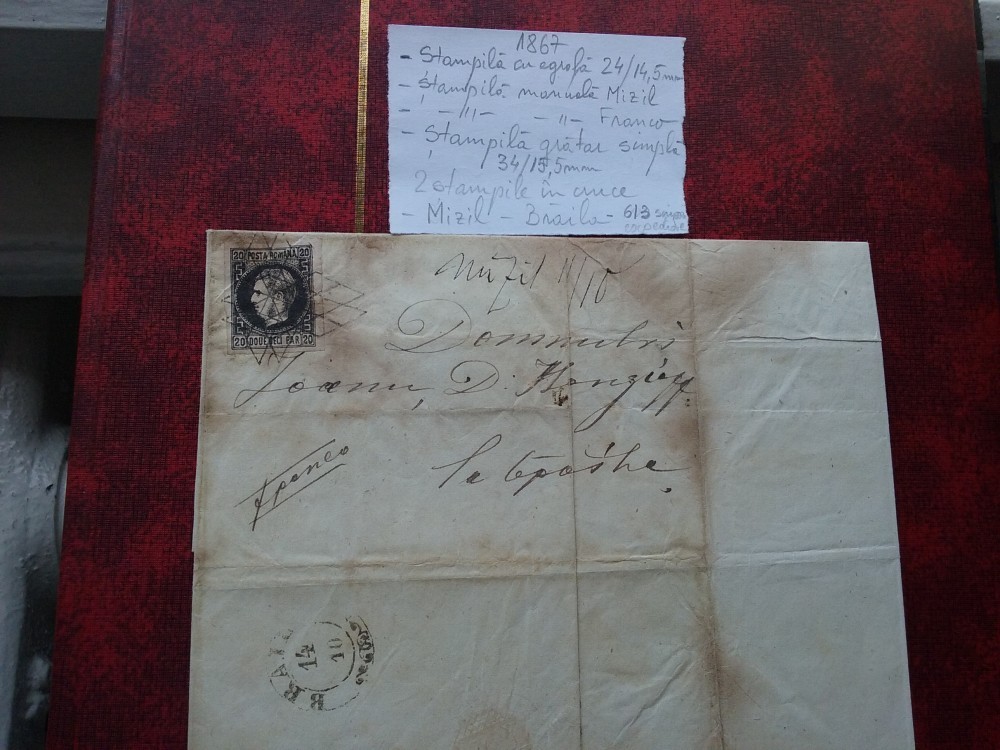 1867
- Ștampilă cu agrafă 24/14,5mm
- Ștampilă manuală Mizil
- -"'- -"- Franco
- Ștampilă grătar simplă
34/15,5mm
2 ștampile în cruce
- Mizil - Brăila - 613
POSTA ROMANA
20 20
20 DOUEDECI PAR 20
Mizil 11/10
Domnului
Ioanu, D.
Franco
la
BRAIL
14
10